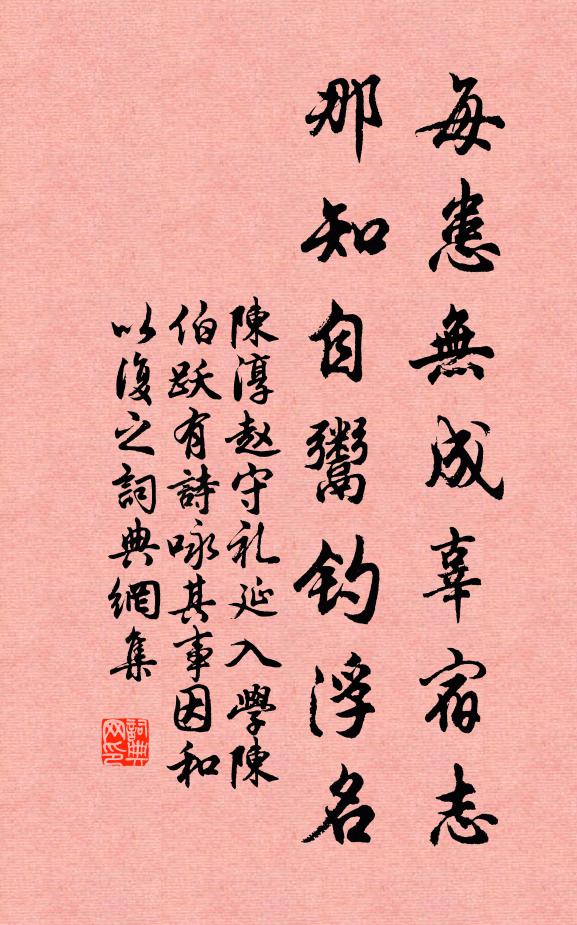 每患無成辜宿志
那知自鬻釣浮名
陳淳赵守礼延入學陳
伯跃有詩咏其事因和
以復之詞典網集
詞典网印